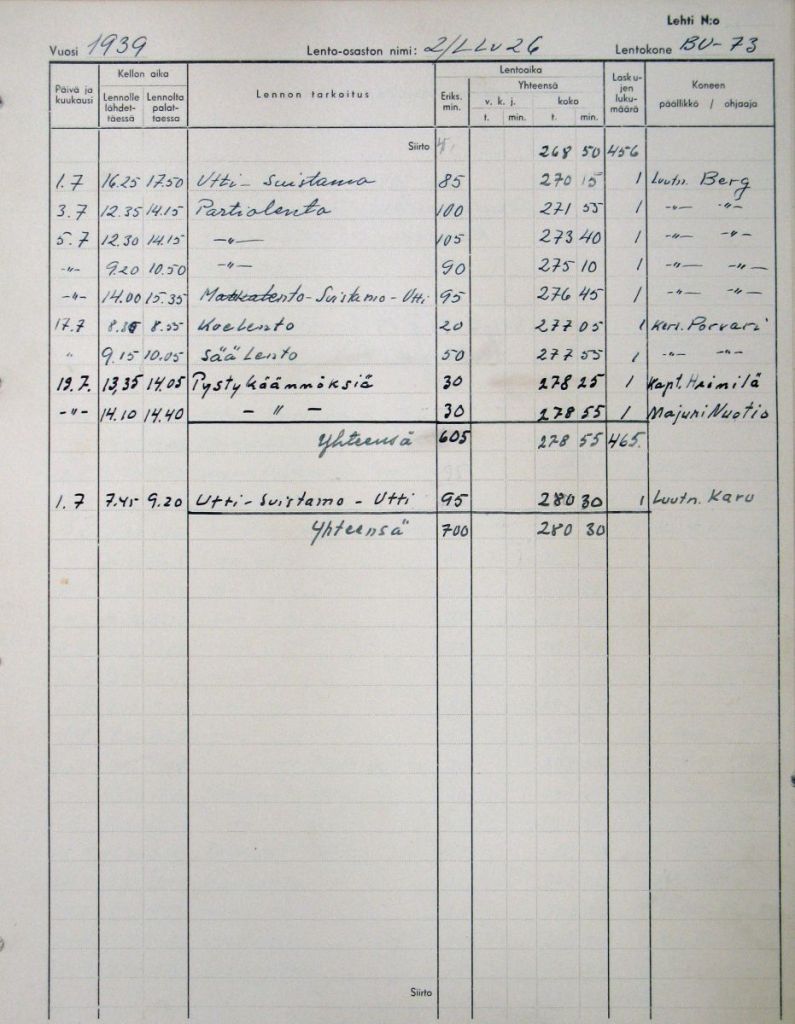 Lehti N:o
Vuosi 1939 Lento-osaston nimi: 2/LLv26 Lentokone BU-73
Päivä ja kuukausi Kellon aika Lennon tarkoitus Lentoaika Lasku-jen luku-määrä Koneen päällikkö / ohjaaja
Lennolle lähdet-täessä Lennolta palat-taessa Eriks. min. Yhteensä
v. k. j. koko
t. min. t. min.
Siirto 268 50 456
1.7 16.25 17.50 Utti - Suistamo 85 270 15 1 Luutn. Berg
3.7 12.35 14.15 Partiolento 100 271 55 1 -"- -"-
5.7 12.30 14.15 -"- 105 273 40 1 -"- -"-
-"- 9.20 10.50 -"- 90 275 10 1 -"- -"-
-"- 14.00 15.35 Matkalento - Suistamo - Utti 95 276 45 1 -"- -"-
17.7 8.35 8.55 Koelento 20 277 05 1 Kers. Porvari
" 9.15 10.05 Säälento 50 277 55 1 -"- -"-
19.7. 13,35 14.05 Pystykäännöksiä 30 278 25 1 Kapt. Heinilä
-"- 14.10 14.40 - " - 30 278 55 1 Majuri Nuotio
Yhteensä 605 278 55 465.
1.7 7.45 9.20 Utti - Suistamo - Utti 95 280 30 1 Luutn. Karu
Yhteensä 700 280 30
Siirto